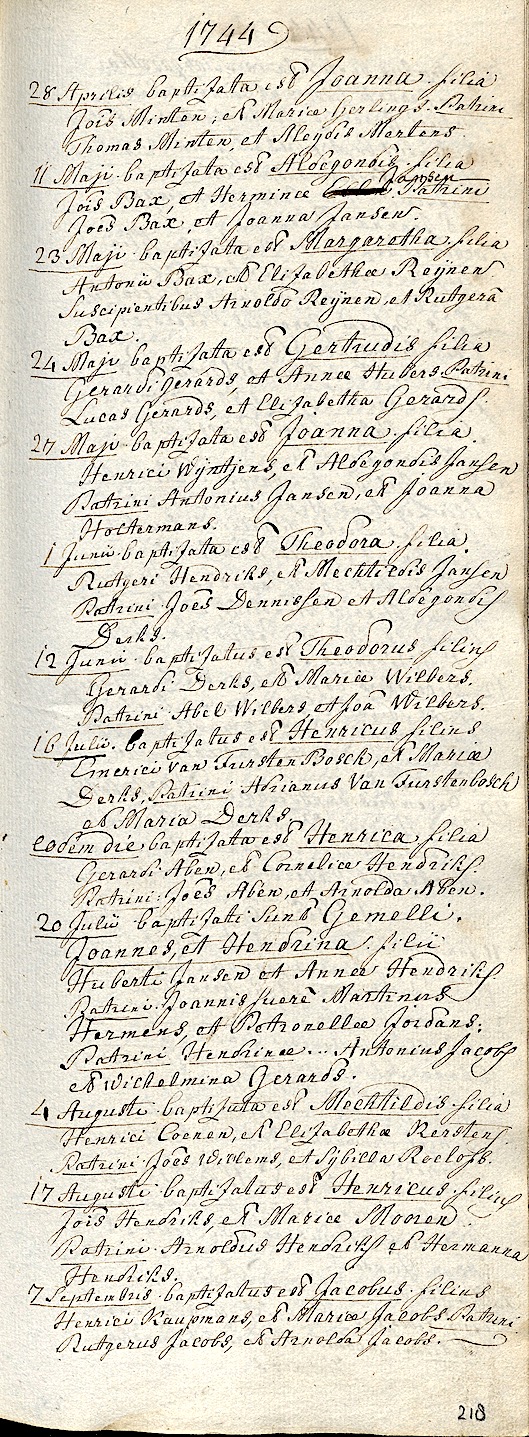 1744
28 Aprilis baptisata est Joanna filia
Jois Minten, et Mariæ Gerlings. Patrini
Thomas Minten, et Aleydis Mertens.
11 Maji baptisata est Aldegondis filia
Jansen
Jois Bax, et Herminæ Patrini
Joes Bax, et Joanna Jansen.
23 Maji baptisata est Margaretha filia
Antonii Bax, et Elisabethæ Reijnen
Suscipientibus Arnoldo Reijnen, et Rutgera
Bax.
24 Maji baptisata est Gertrudis filia
Gerardi Gerards, et Annæ Hubers. Patrini
Lucas Gerards, et Elisabetha Gerards.
27 Maji baptisata est Joanna filia
Henrici Wijntjens, et Aldegondis Jansen
Patrini Antonius Jansen, et Joanna
Holtermans.
1 Junii baptisata est Theodora filia
Rutgeri Hendriks, et Mechtildis Jansen
Patrini Joes Dennissen et Aldegondis
Derks.
12 Junii baptisatus est Theodorus filius
Gerardi Derks, et Mariæ Wilbers.
Patrini Abel Wilbers et Joa Wilbers.
16 Julii. baptisatus est Henricus filius
Emerici van Furstenbosch, et Mariæ
Derks, Patrini Adrianus van Furstenbosch
et Maria Derks.
eodem die baptisata est Henrica filia
Gerardi Aben, et Corneliæ Hendriks.
Patrini: Joes Aben, et Arnolda Aben.
20 Julii baptisati sunt Gemelli.
Joannes, et Hendrina filii
Huberti Jansen et Annæ Hendriks
Patrini Joannis fuere Martinus
Hermens, et Petronellæ Jordans;
Patrini Hendrinæ... Antonius Jacobs
et Wilhelmina Gerards.
4 Augusti baptisata est Mechtildis filia
Henrici Coenen, et Elisabethæ Kersten.
Patrini Joes Willems, et Sybilla Roelofs.
17 Augusti baptisatus est Henricus filius
Jois Hendriks, et Mariæ Mooren
Patrini Arnoldus Hendriks et Hermanna
Hendriks.
7 Septembris baptisatus est Jacobus filius
Henrici Kaupmans, et Mariæ Jacobs Patrini
Rutgerus Jacobs, et Arnolda Jacobs.
218